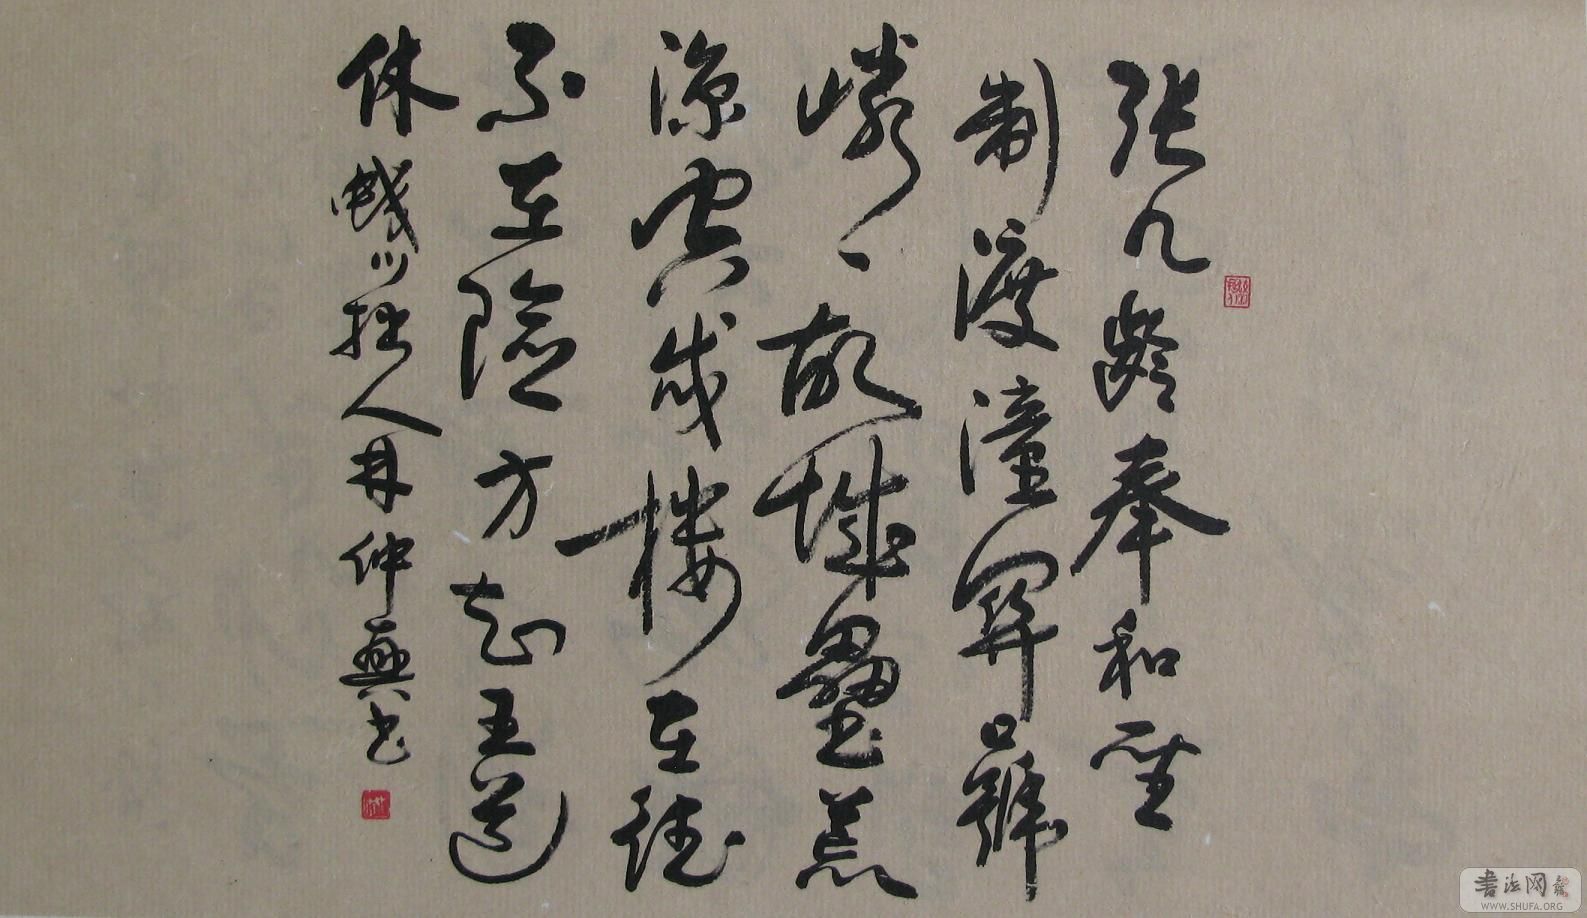 張九齡奉和聖
制渡潼関口號
嶙々故城壘荒
涼空戍樓在德
不在險方知王道
休 川拙人 仲興书
书法网
WWW.SHUFA.ORG